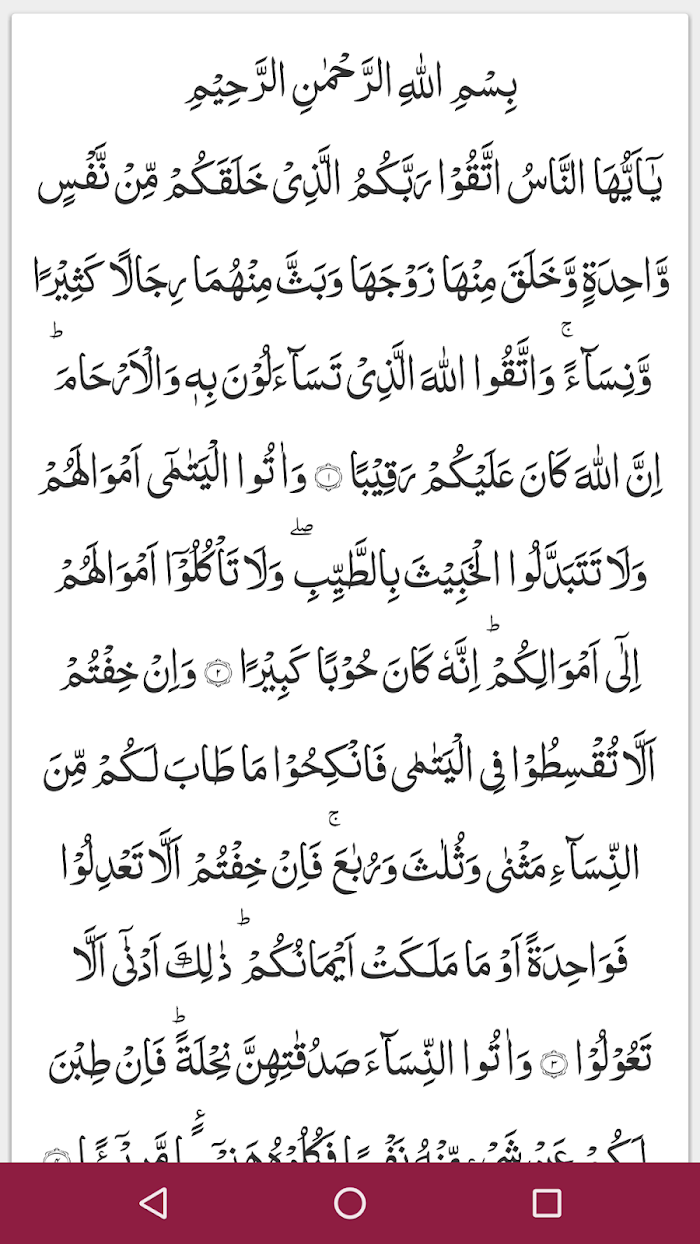 بِسْمِ اللهِ الرَّحْمٰنِ الرَّحِيْمِ
يٰۤاَيُّهَا النَّاسُ اتَّقُوْا رَبَّكُمُ الَّذِىْ خَلَقَكُمْ مِّنْ نَّفْسٍ
وَّاحِدَةٍ وَّخَلَقَ مِنْهَا زَوْجَهَا وَبَثَّ مِنْهُمَا رِجَالًا كَثِيْرًا
وَّنِسَآءً ۚ وَاتَّقُوا اللهَ الَّذِىْ تَسَآءَلُوْنَ بِهٖ وَالْاَرْحَامَ ؕ
اِنَّ اللهَ كَانَ عَلَيْكُمْ رَقِيْبًا ۝۱ وَاٰتُوا الْيَتٰمٰٓى اَمْوَالَهُمْ
وَلَا تَتَبَدَّلُوا الْخَبِيْثَ بِالطَّيِّبِ ۖ وَلَا تَاْكُلُوْۤا اَمْوَالَهُمْ
اِلٰٓى اَمْوَالِكُمْ ؕ اِنَّهٗ كَانَ حُوْبًا كَبِيْرًا ۝۲ وَاِنْ خِفْتُمْ
اَلَّا تُقْسِطُوْا فِى الْيَتٰمٰى فَانْكِحُوْا مَا طَابَ لَكُمْ مِّنَ
النِّسَآءِ مَثْنٰى وَثُلٰثَ وَرُبٰعَ ۚ فَاِنْ خِفْتُمْ اَلَّا تَعْدِلُوْا
فَوَاحِدَةً اَوْ مَا مَلَكَتْ اَيْمَانُكُمْ ؕ ذٰلِكَ اَدْنٰٓى اَلَّا
تَعُوْلُوْا ۝۳ وَاٰتُوا النِّسَآءَ صَدُقٰتِهِنَّ نِحْلَةً ؕ فَاِنْ طِبْنَ